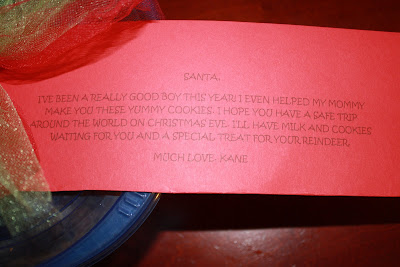 SANTA,
I'VE BEEN A REALLY GOOD BOY THIS YEAR! I EVEN HELPED MY MOMMY
MAKE YOU THESE YUMMY COOKIES. I HOPE YOU HAVE A SAFE TRIP
AROUND THE WORLD ON CHRISTMAS EVE. I'LL HAVE MILK AND COOKIES
WAITING FOR YOU AND A SPECIAL TREAT FOR YOUR REINDEER.
MUCH LOVE, KANE